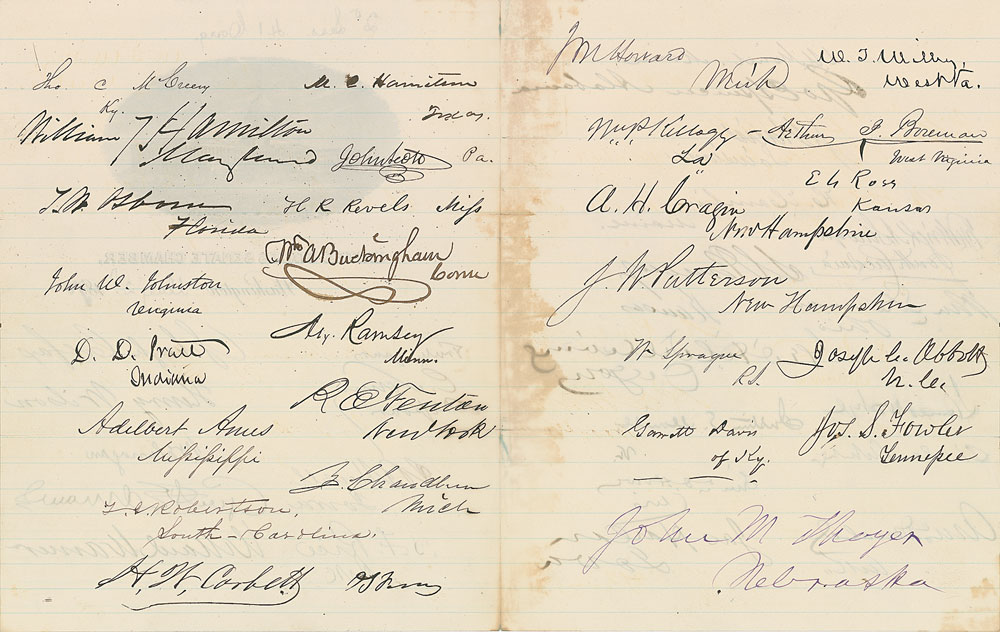 Tho. C McCreery
Ky.
William T Hamilton
Maryland
T. W. Osborn
Florida
John W. Johnston
Virginia
D. D. Pratt
Indiana
Adelbert Ames
Mississippi
T. J. Robertson,
South-Carolina.
H. W. Corbett
M. C. Hamilton
Texas.
John Scott Pa.
H R Revels Miss
Wm A Buckingham
Conn
Alex. Ramsey
Minn.
R E Fenton
New York
Z. Chandler
Mich
J M Howard
Mich
W. T. Willey,
West Va.
Wm P Kellogg
La
Arthur I. Boreman
West Virginia
E G Ross
Kansas
A. H. Cragin
New Hampshire
J. W. Patterson
New Hampshire
W Sprague
R.I.
Joseph C. Abbott
N. Ca
Garrett Davis
of Ky.
Jos. S. Fowler
Tennessee
John M Thayer
Nebraska
SENATE CHAMBER,